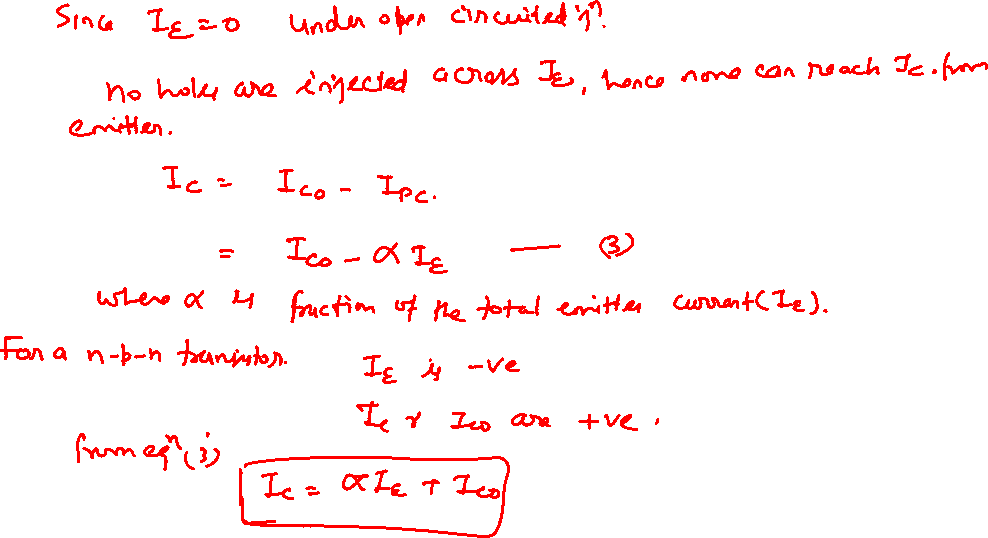 Since I_E = 0 under open circuited
no holes are injected across J_E, hence none can reach J_C. from
emitter.
I_C = I_CO - I_PC.
= I_CO - α I_E —— (3)
where α is fraction of the total emitter current (I_E).
For a n-p-n transistor. I_E is -ve
I_C & I_CO are +ve.
from eqⁿ (3)
I_C = α I_E + I_CO